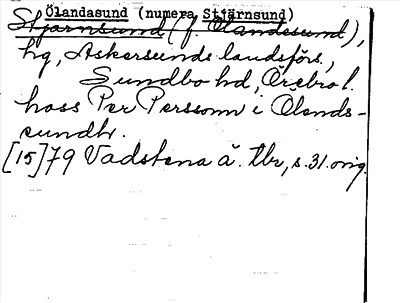 Ölandasund (numera Stjärnsund)
Stjärnsund (f. Olandesund),
hg, Askersunds landsförs.,
Sundbo hd, Örebro l.
hoss Per Perssonn i Olands-
sundh.
[15]79 Vadstena ä. tbr, s. 31. orig.